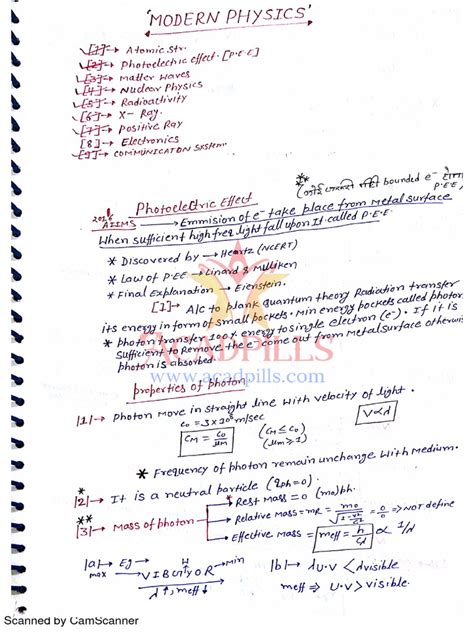 'MODERN PHYSICS'
[1]→ Atomic Str.
[2]→ Photoelectric effect. [P.E.E]
[3]→ Matter Waves
[4]→ Nuclear Physics
[5]→ Radioactivity
[6]→ X-Ray.
[7]→ Positive Ray
[8]→ Electronics
[9]→ COMMUNICATION SYSTEM
bounded e⁻
P.E.E)
Photoelectric Effect
2016
AIIMS → Emmision of e⁻ take place from Metal surface
When sufficient high freq. light fall upon It called P.E.E.
* Discovered by → Heartz (NCERT)
* Law of P.EE → Linard & Milliken
* Final Explanation → Eienstein.
[1]→ A/c to plank quantum theory Radiation transfer
its energy in form of small pockets. Min energy pockets called photon
* photon transfer 100% energy to single electron (e⁻). If it is
Sufficient to Remove the e⁻ come out from Metal surface otherwise
photon is absorbed.
ACADPILLS
www.acadpills.com
properties of photon
|1|→ Photon move in straight line with velocity of light.
C₀ = 3×10⁸ m/sec
C_M = C₀/μm (C_M ≤ C₀) (μm ≥ 1) V∝λ
* Frequency of photon remain unchange with Medium.
*
|2|→ It is a neutral particle (qph=0).
**
|3|→ Mass of photon → Rest Mass = 0 (m₀)ph.
→ Relative mass = mR = m₀/√(1-v²/c²) = 0/0 => NOT define
→ Effective mass = meff = h/cλ ∝ 1/λ
|a|→ Eg → W
max → VIBGYOR → Min
λ↑, meff↓
|b|→ λU.V < λvisible
meff ⇒ U.V > visible.
Scanned by CamScanner